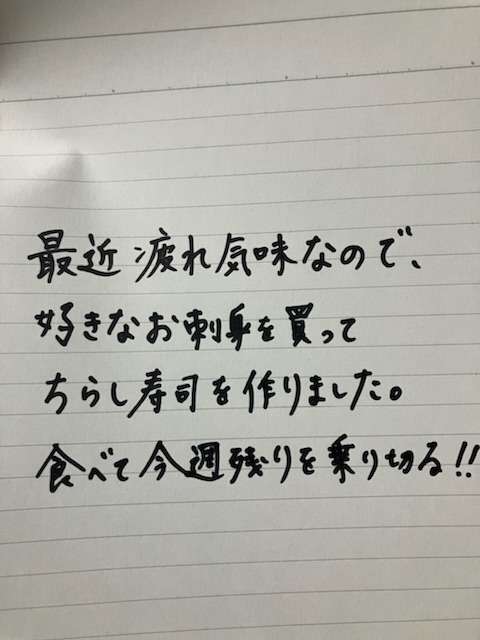 最近疲れ気味なので、
好きなお刺身を買って
ちらし寿司を作りました。
食べて今週残りを乗り切る!!